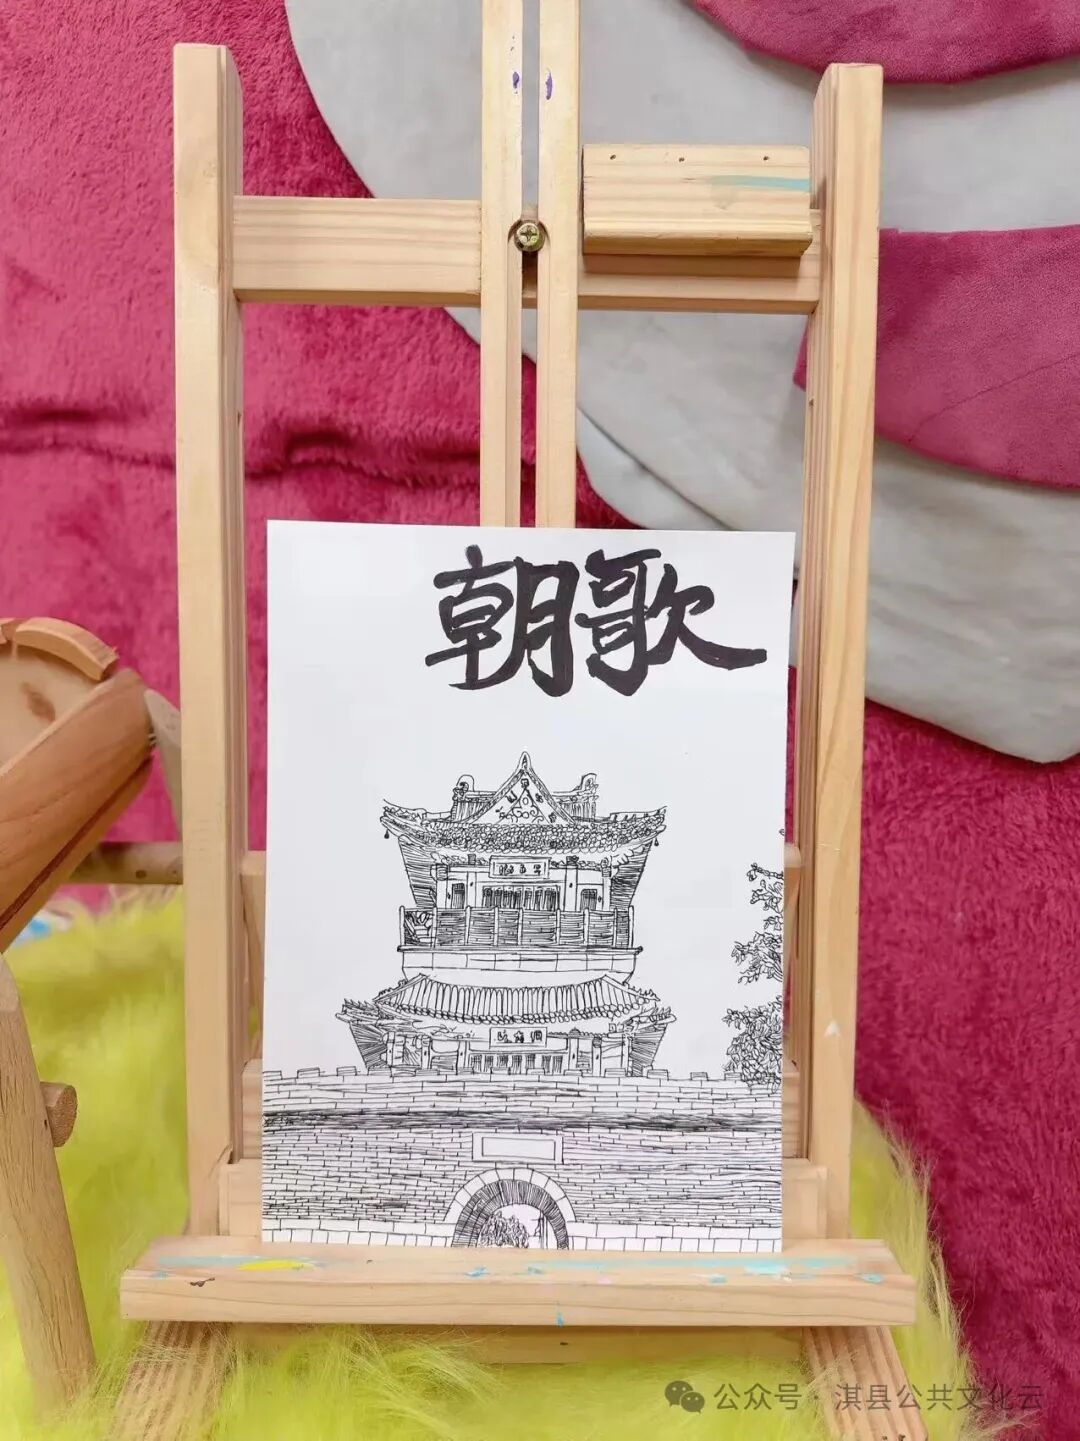 朝歌
公众号 · 淇县公共文化云